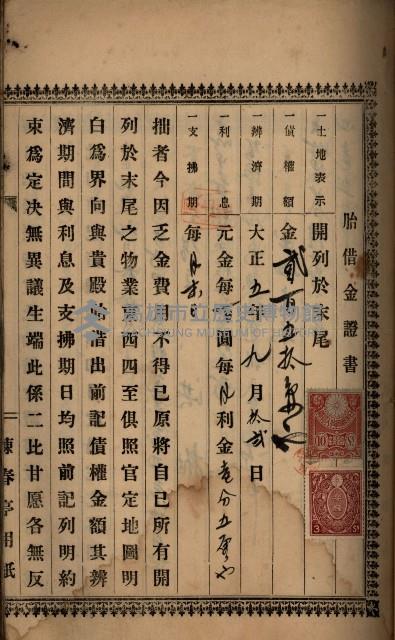 胎借金證書
一土地表示　開列於末尾
一債權額　金貳百五拾円也
一辨濟期　大正五年九月拾貳日
一利息　元金每壹圓每月利金壹分五厘也
一支拂期　每月
拙者今因乏金費用不得已原將自已所有開
列於末尾之物業東西四至俱照官定地圖明
白爲界向與貴殿胎借出前記債權金額其辨
濟期間與利息及支拂期日均照前記列明約
束爲定决無異議生端此係二比甘愿各無反
陳春亭用紙
高雄市立歷史博物館
KAOHSIUNG MUSEUM OF HISTORY
10
3